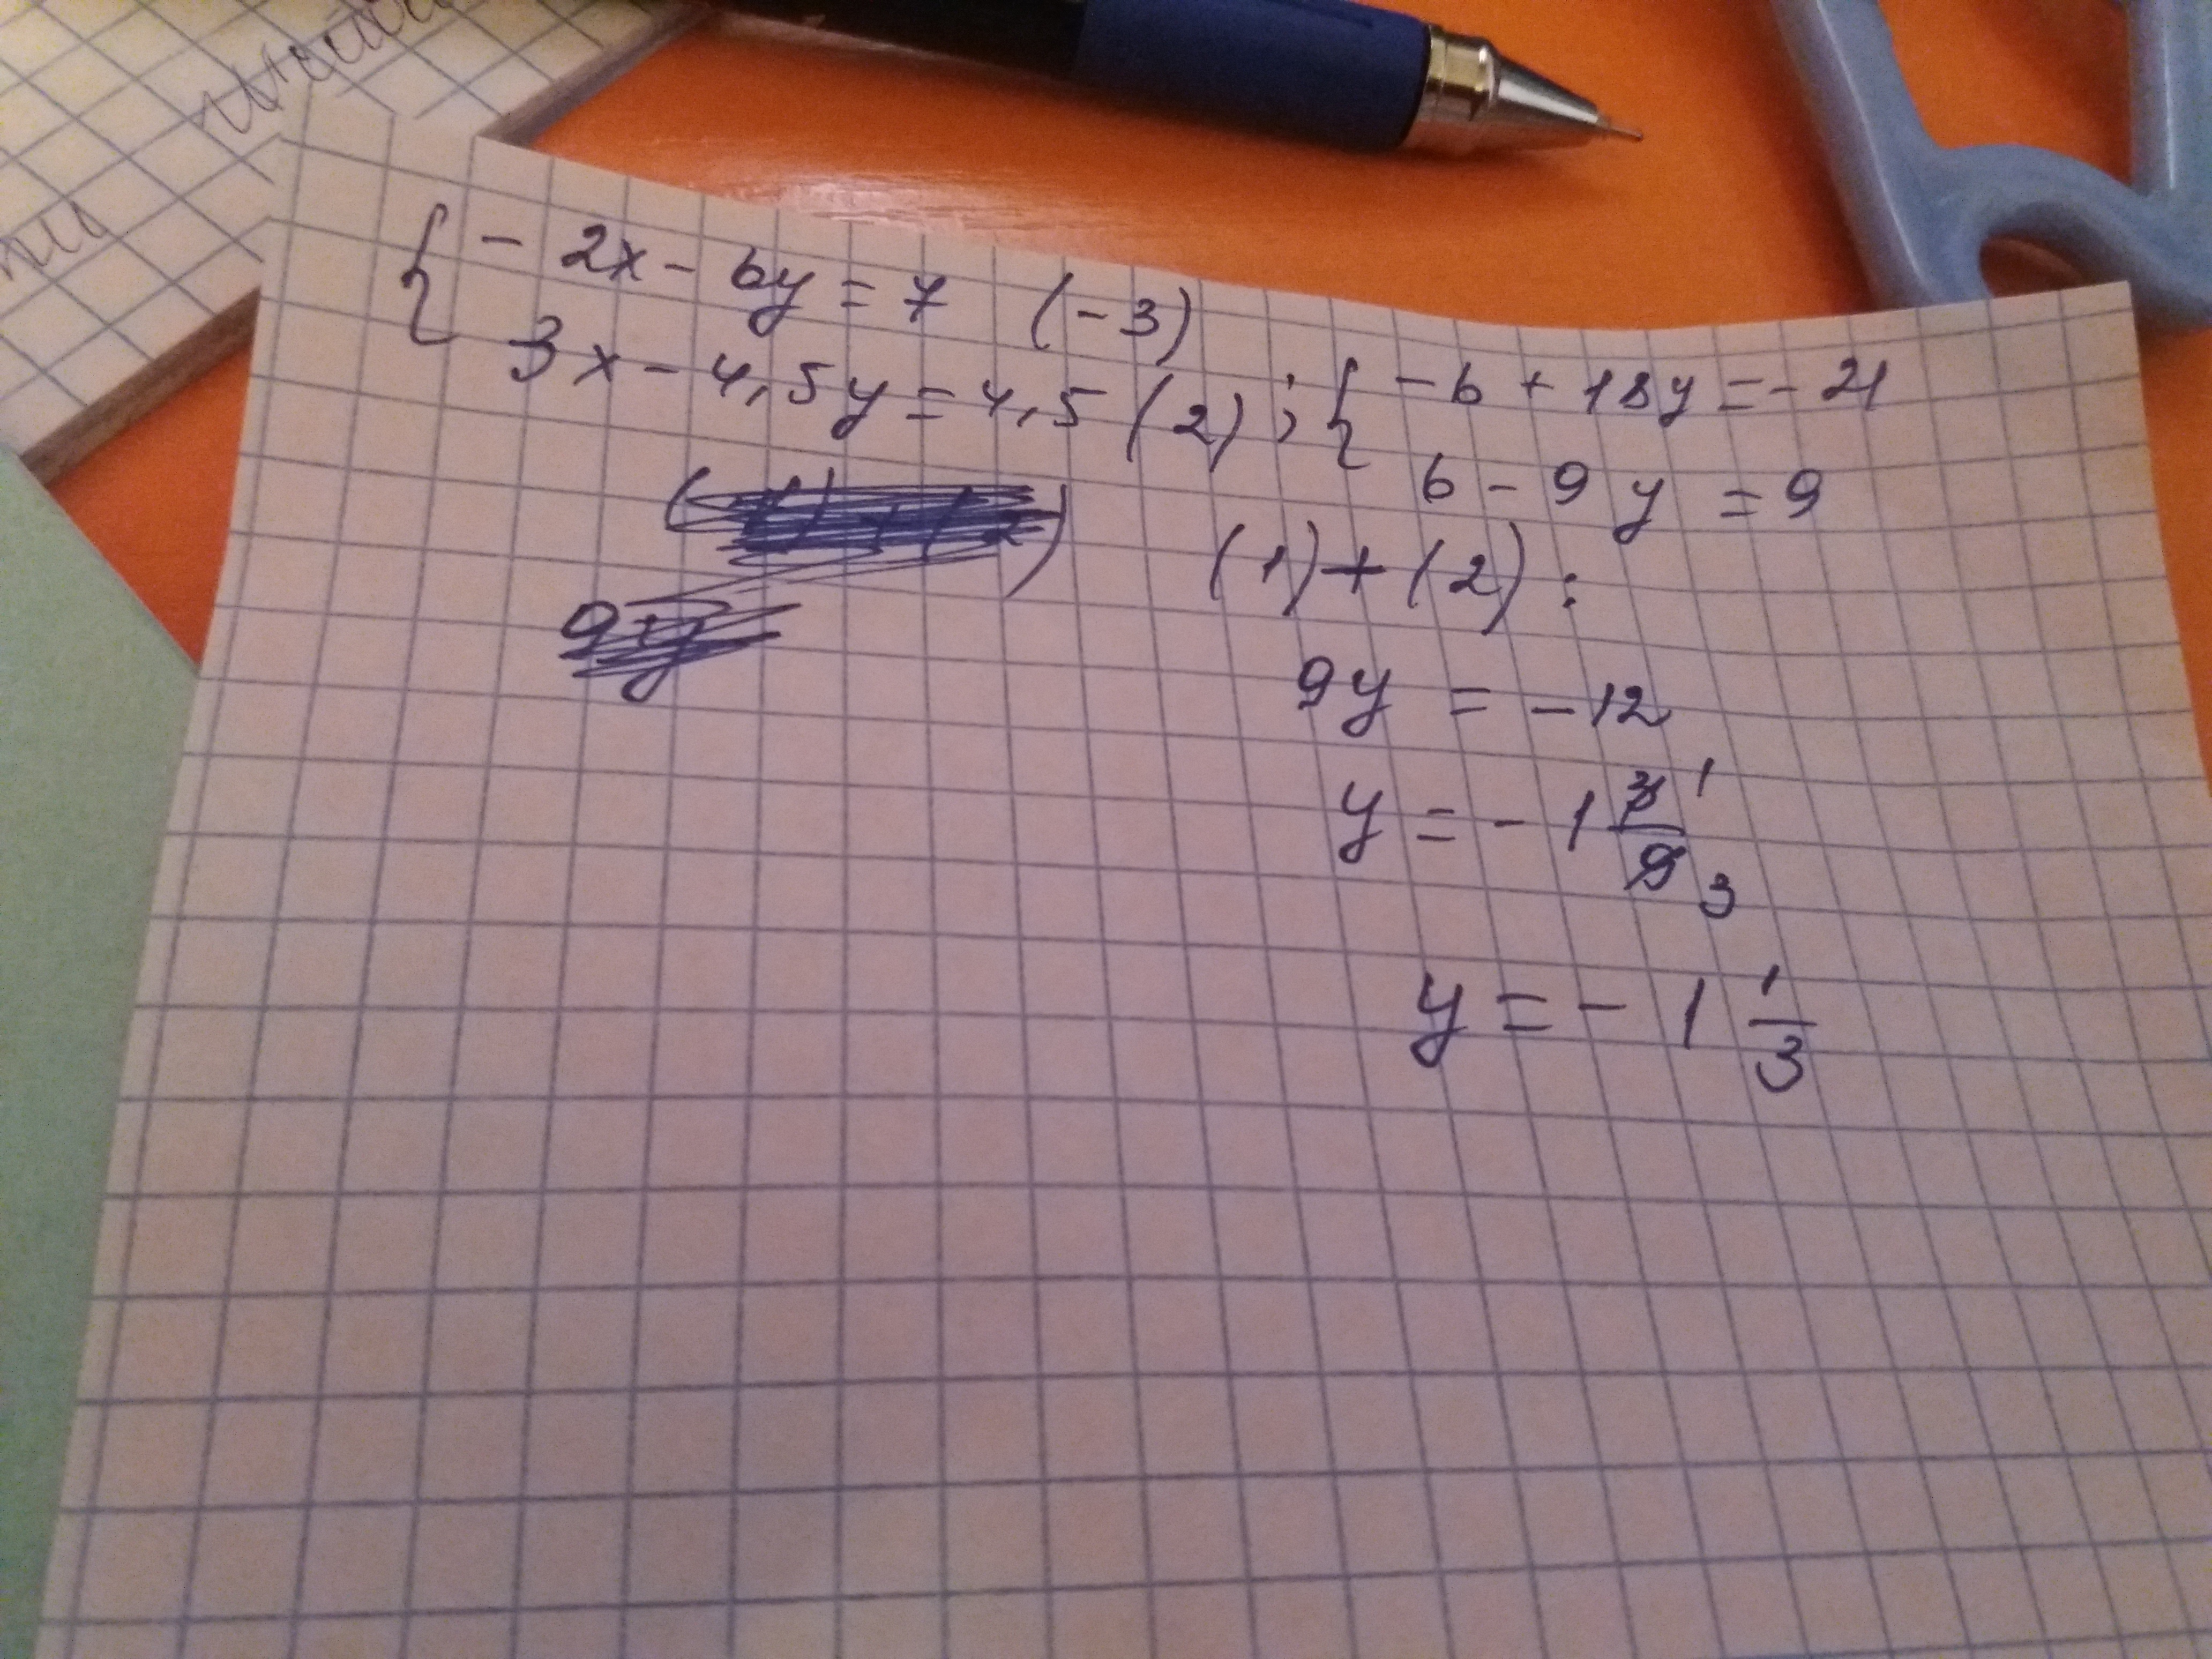 { - 2x - 6y = 7 (-3)
3x - 4,5y = 4,5 (2) ; { - 6 + 18y = - 21
6 - 9y = 9
(1) + (2) :
9y = - 12
y = - 1 3/9 1 3
y = - 1 1/3